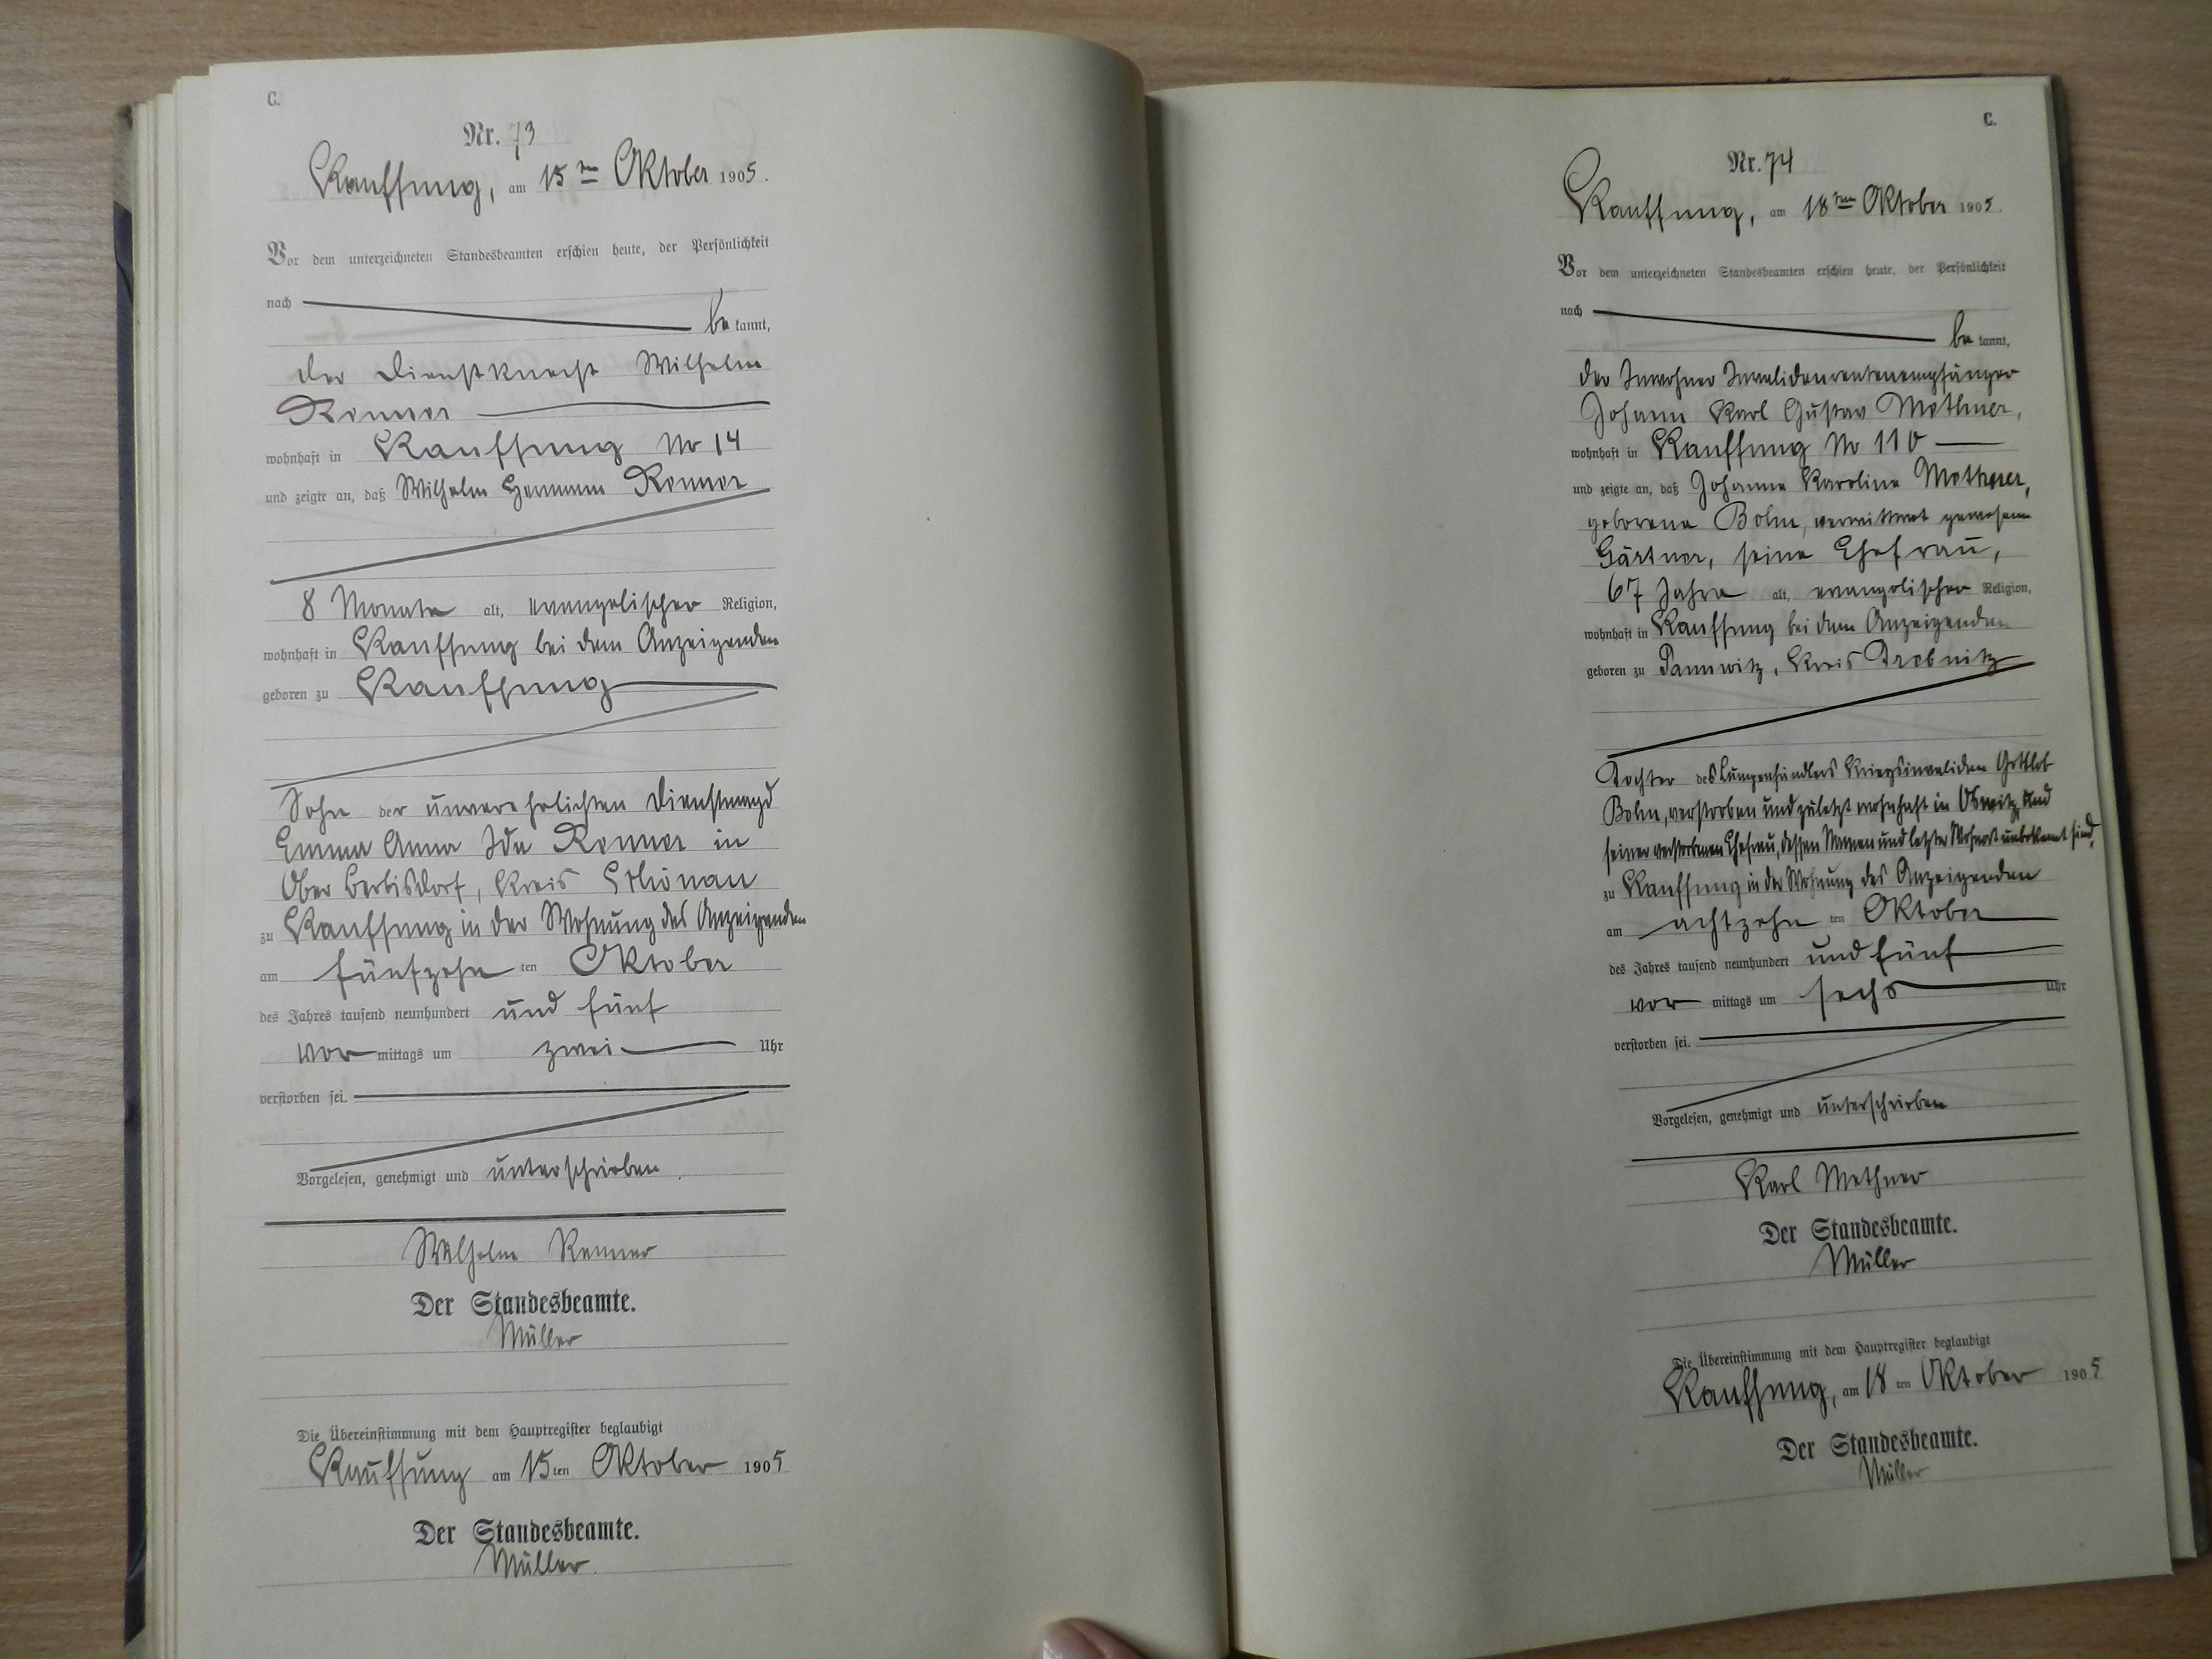 C.
Nr. 73
Kauffung, am 15ten Oktober 1905.
Vor dem unterzeichneten Standesbeamten erschien heute, der Persönlichkeit
nach
be kannt,
der Dienstknecht Wilhelm
Renner
wohnhaft in Kauffung No 14
und zeigte an, daß Wilhelm Hermann Renner
8 Monate alt, evangelischer Religion,
wohnhaft in Kauffung bei dem Anzeigenden
geboren zu Kauffung
Sohn der unverehelichten Dienstmagd
Emma Anna Ida Renner in
Ober Berbisdorf, Kreis Schönau
zu Kauffung in der Wohnung des Anzeigenden
am fünfzehn ten Oktober
des Jahres tausend neunhundert und fünf
vor mittags um zwei Uhr
verstorben sei.
Vorgelesen, genehmigt und unterschrieben.
Wilhelm Renner
Der Standesbeamte.
Müller
Die Übereinstimmung mit dem Hauptregister beglaubigt
Kauffung am 15ten Oktober 1905
Der Standesbeamte.
Müller.
C.
Nr. 74
Kauffung, am 18ten Oktober 1905.
Vor dem unterzeichneten Standesbeamten erschien heute, der Persönlichkeit
nach
be kannt,
der Inwohner Invalidenrentenempfänger
Johann Karl Gustav Methner,
wohnhaft in Kauffung No 110
und zeigte an, daß Johanne Karoline Methner,
geborene Bohn, verwittwet gewesene
Gärtner, seine Ehefrau,
67 Jahre alt, evangelischer Religion,
wohnhaft in Kauffung bei dem Anzeigenden
geboren zu Pannwitz, Kreis Trebnitz
Tochter des Lumpenhändlers Kriegsinvaliden Gottlob
Bohn, verstorben und zuletzt wohnhaft in Oswitz, und
seiner verstorbenen Ehefrau, dessen Namen und letzter Wohnort unbekannt sind,
zu Kauffung in der Wohnung des Anzeigenden
am achtzehn ten Oktober
des Jahres tausend neunhundert und fünf
vor mittags um sechs Uhr
verstorben sei.
Vorgelesen, genehmigt und unterschrieben
Karl Methner
Der Standesbeamte.
Müller
Die Übereinstimmung mit dem Hauptregister beglaubigt
Kauffung, am 18 ten Oktober 1905
Der Standesbeamte.
Müller